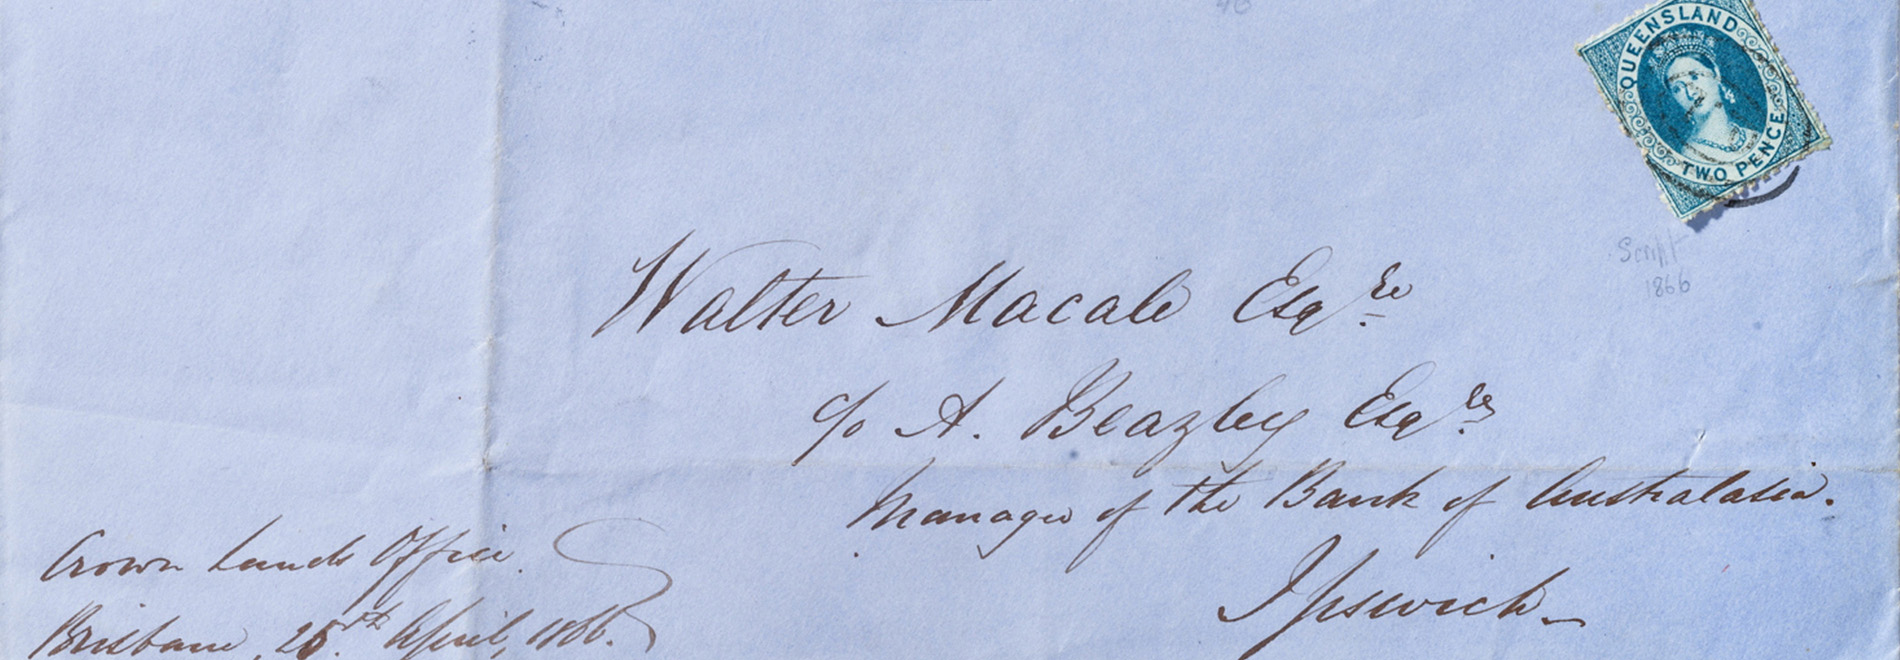 QUEENSLAND
TWO PENCE
Script
1866
Walter Macale Esqre
c/o A. Beazley Esqre
Manager of the Bank of Australasia.
Ipswich
Crown Lands Office
Brisbane, April, 1866.